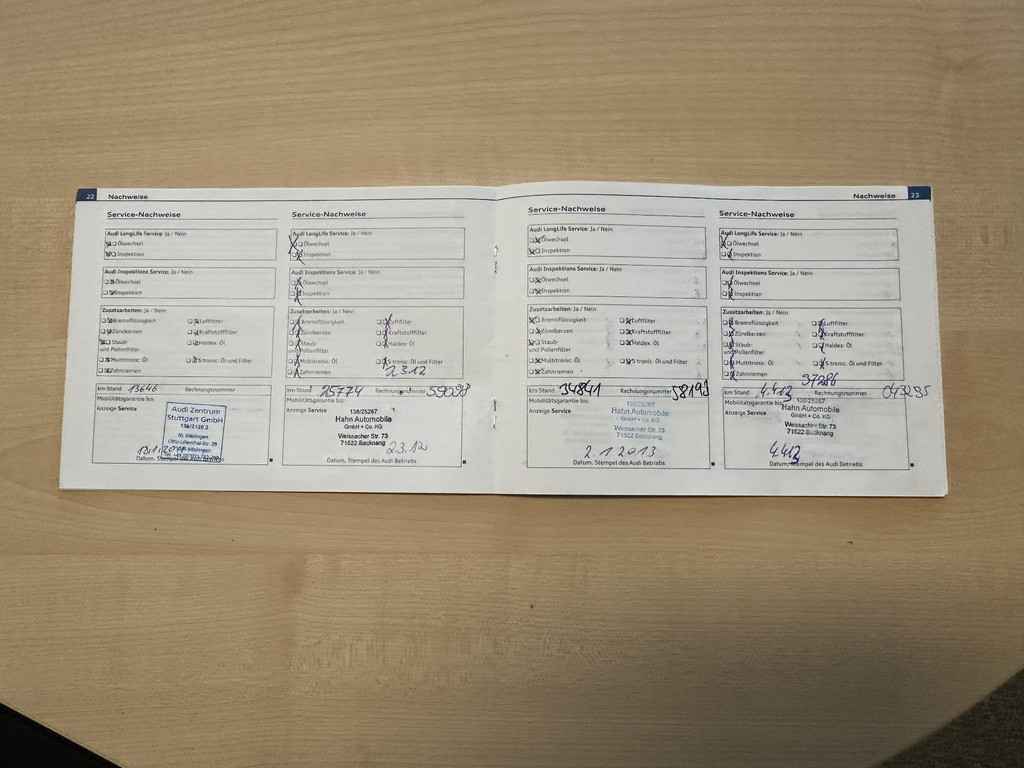 22 Nachweise
Service-Nachweise
Audi LongLife Service: Ja / Nein
Ölwechsel
Inspektion
Audi Inspektions Service: Ja / Nein
Ölwechsel
Inspektion
Zusatzarbeiten: Ja / Nein
Bremsflüssigkeit
Luftfilter
Zündkerzen
Kraftstofffilter
Staub-
und Pollenfilter
Haldex Öl
Multitronic Öl
S tronic Öl und Filter
Zahnriemen
km Stand 13646 Rechnungsnummer
Mobilitätsgarantie bis:
Anzeige Service
Audi Zentrum
Stuttgart GmbH
Datum, Stempel des Audi Betriebs
Service-Nachweise
Audi LongLife Service: Ja / Nein
Ölwechsel
Inspektion
Audi Inspektions Service: Ja / Nein
Ölwechsel
Inspektion
Zusatzarbeiten: Ja / Nein
Bremsflüssigkeit
Luftfilter
Zündkerzen
Kraftstofffilter
Staub-
und Pollenfilter
Haldex Öl
Multitronic Öl
S tronic Öl und Filter
Zahnriemen
2.3.12
km Stand 25774 Rechnungsnummer
Mobilitätsgarantie bis:
Anzeige Service
136/25267
Hahn Automobile
GmbH + Co. KG
Weissacher Str. 73
71522 Backnang
2.3.12
Datum, Stempel des Audi Betriebs
Nachweise 23
Service-Nachweise
Audi LongLife Service: Ja / Nein
Ölwechsel
Inspektion
Audi Inspektions Service: Ja / Nein
Ölwechsel
Inspektion
Zusatzarbeiten: Ja / Nein
Bremsflüssigkeit
Luftfilter
Zündkerzen
Kraftstofffilter
Staub-
und Pollenfilter
Haldex Öl
Multitronic Öl
S tronic Öl und Filter
Zahnriemen
km Stand 34841 Rechnungsnummer
Mobilitätsgarantie bis:
Anzeige Service
136/25267
Hahn Automobile
GmbH + Co. KG
Weissacher Str. 73
71522 Backnang
2.1.2013
Datum, Stempel des Audi Betriebs
Service-Nachweise
Audi LongLife Service: Ja / Nein
Ölwechsel
Inspektion
Audi Inspektions Service: Ja / Nein
Ölwechsel
Inspektion
Zusatzarbeiten: Ja / Nein
Bremsflüssigkeit
Luftfilter
Zündkerzen
Kraftstofffilter
Staub-
und Pollenfilter
Haldex Öl
Multitronic Öl
S tronic Öl und Filter
Zahnriemen
37286
km Stand 4.4.13 Rechnungsnummer 043295
Mobilitätsgarantie bis:
Anzeige Service
136/25267
Hahn Automobile
GmbH + Co. KG
Weissacher Str. 73
71522 Backnang
4.4.13
Datum, Stempel des Audi Betriebs